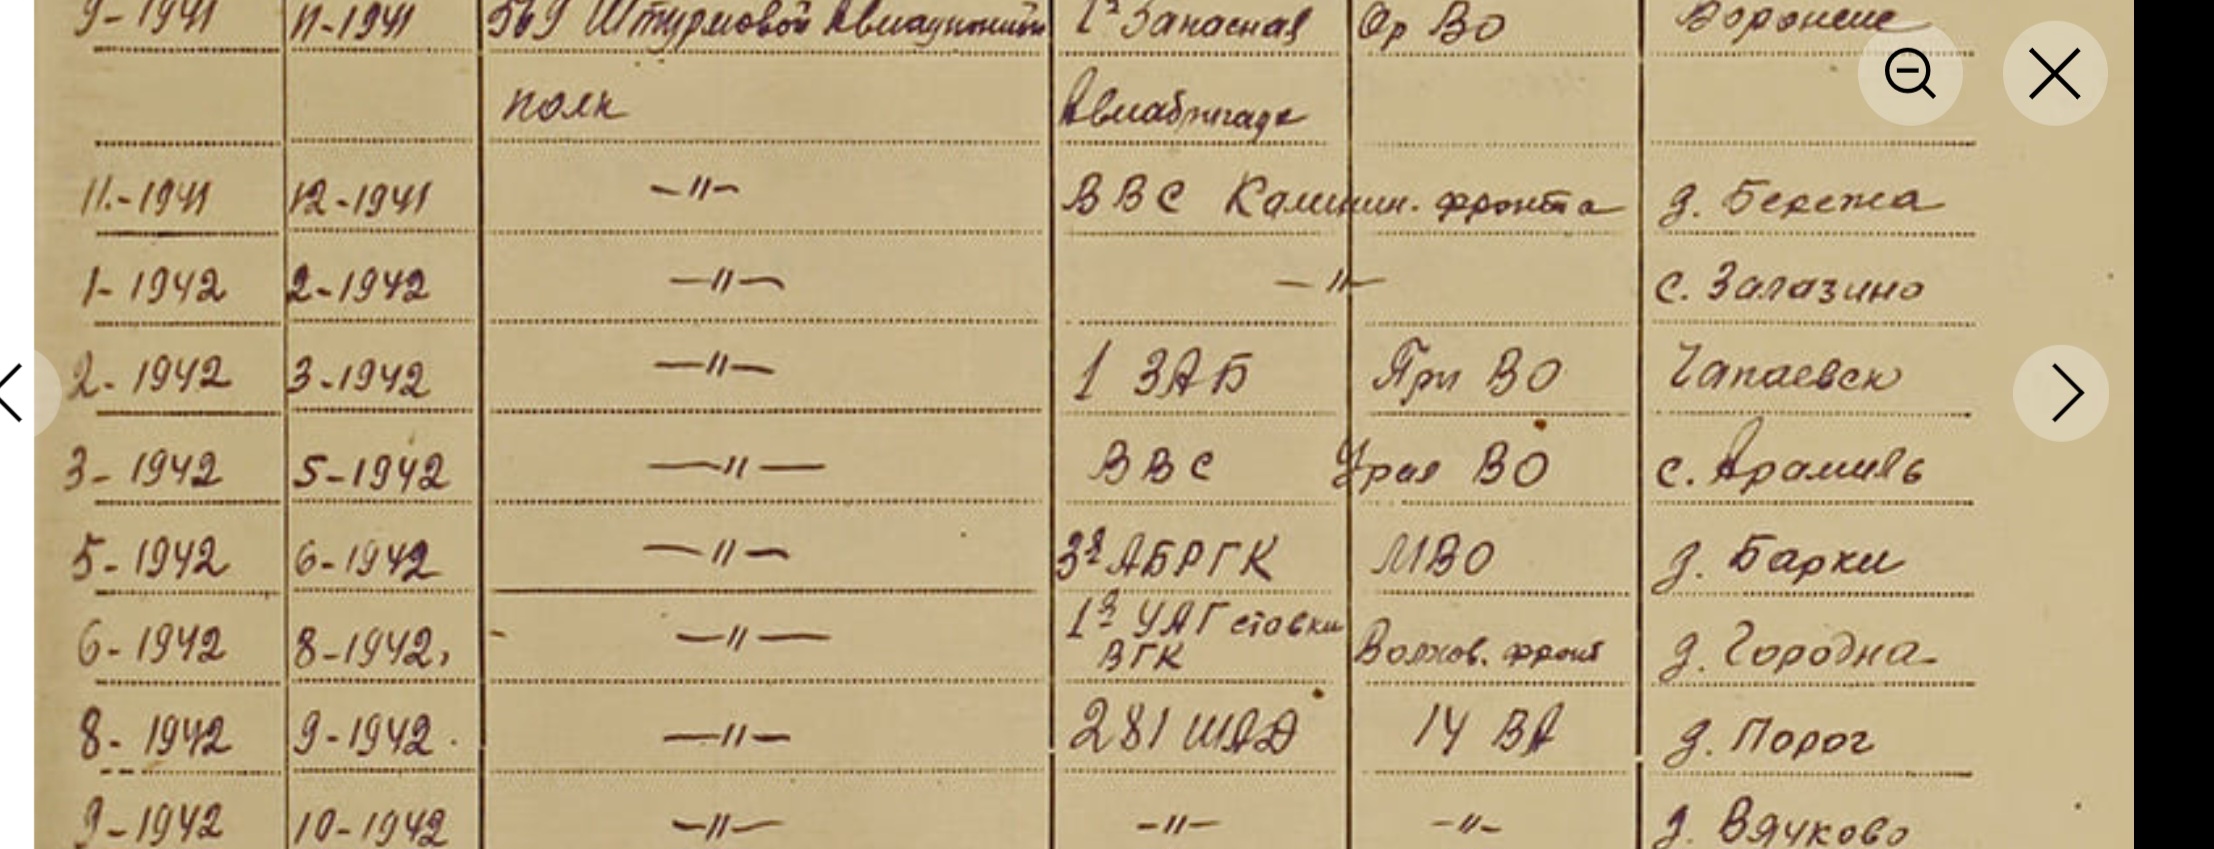 9-1941 11-1941 569 Штурмовой Авиационный 1ª Запасная Ор ВО Воронеже
полк Авиабригада
11.-1941 12-1941 —〃— ВВС Калинин. фронта д. Бережа
1-1942 2-1942 —〃— —〃— с. Залазино
2-1942 3-1942 —〃— 1 ЗАБ При ВО Чапаевск
3-1942 5-1942 —〃— ВВС Урал ВО с. Арамиль
5-1942 6-1942 —〃— 3ª АБРГК МВО д. Барки
6-1942 8-1942, —〃— 1ª УАГ ставки
ВГК Волхов. фронт д. Городна
8-1942 9-1942. —〃— 281 ШАД 14 ВА д. Порог
9-1942 10-1942 —〃— —〃— —〃— д. Вячково